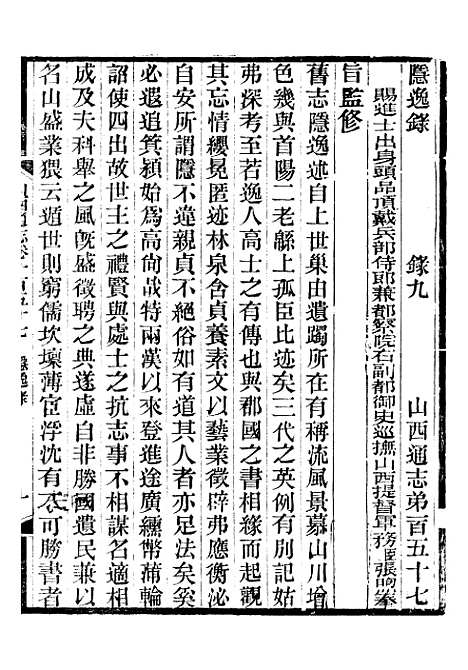 隱逸錄　錄九　山西通志弟百五十七
賜進士出身頭品頂戴兵部侍郎兼都察院右副都御史巡撫山西提督軍務臣張煦奉
旨監修
舊志隱逸述自上世巢由遺躅所在有稱流風景慕山川增
色幾與首陽二老緜上孤臣比迹矣三代之英例有別記姑
弗探考至若逸人高士之有傳也與郡國之書相緣而起觀
其忘情纓冕匿迹林泉含貞養素文以藝業徵辟弗應衡泌
自安所謂隱不違親貞不絕俗如有道其人者亦足法矣奚
必遐追箕潁始爲高尚哉特兩漢以來登進途廣纁幣蒲輪
詔使四出故世主之禮賢與處士之抗志事不相謀名適相
成及夫科舉之風旣盛徵聘之典遂虛自非勝國遺民兼以
名山盛業猥云遁世則窮儒坎壈薄宦浮沈有不可勝書者
山西通志卷一百五十七　隱逸錄　一